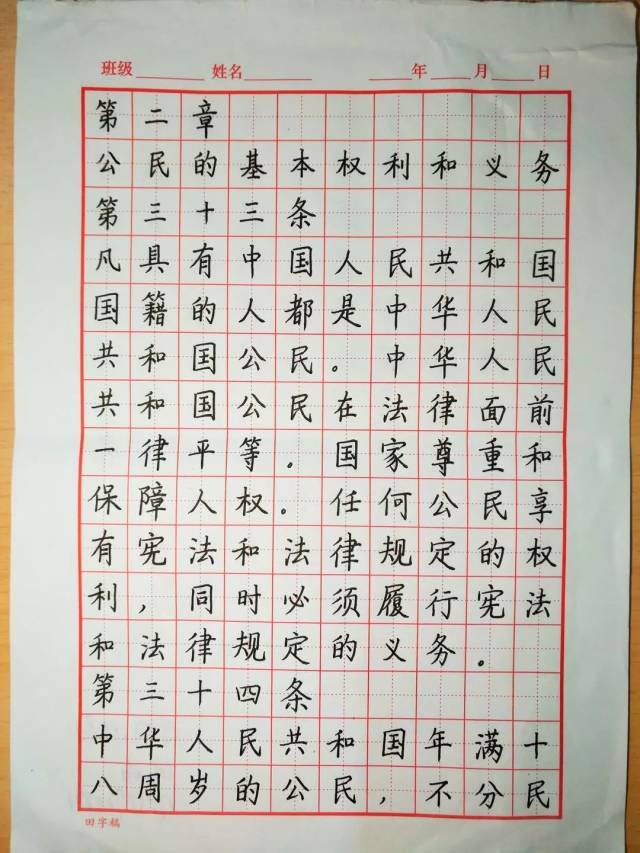 班级 姓名 年 月 日
第二章
公民的基本权利和义务
第三十三条
凡具有中国人民共和国
国籍的人都是中华人民
共和国公民。中华人民
共和国公民在法律面前
一律平等。国家尊重和
保障人权。任何公民享
有宪法和法律规定的权
利,同时必须履行宪法
和法律规定的义务。
第三十四条
中华人民共和国年满十
八周岁的公民,不分民
田字稿